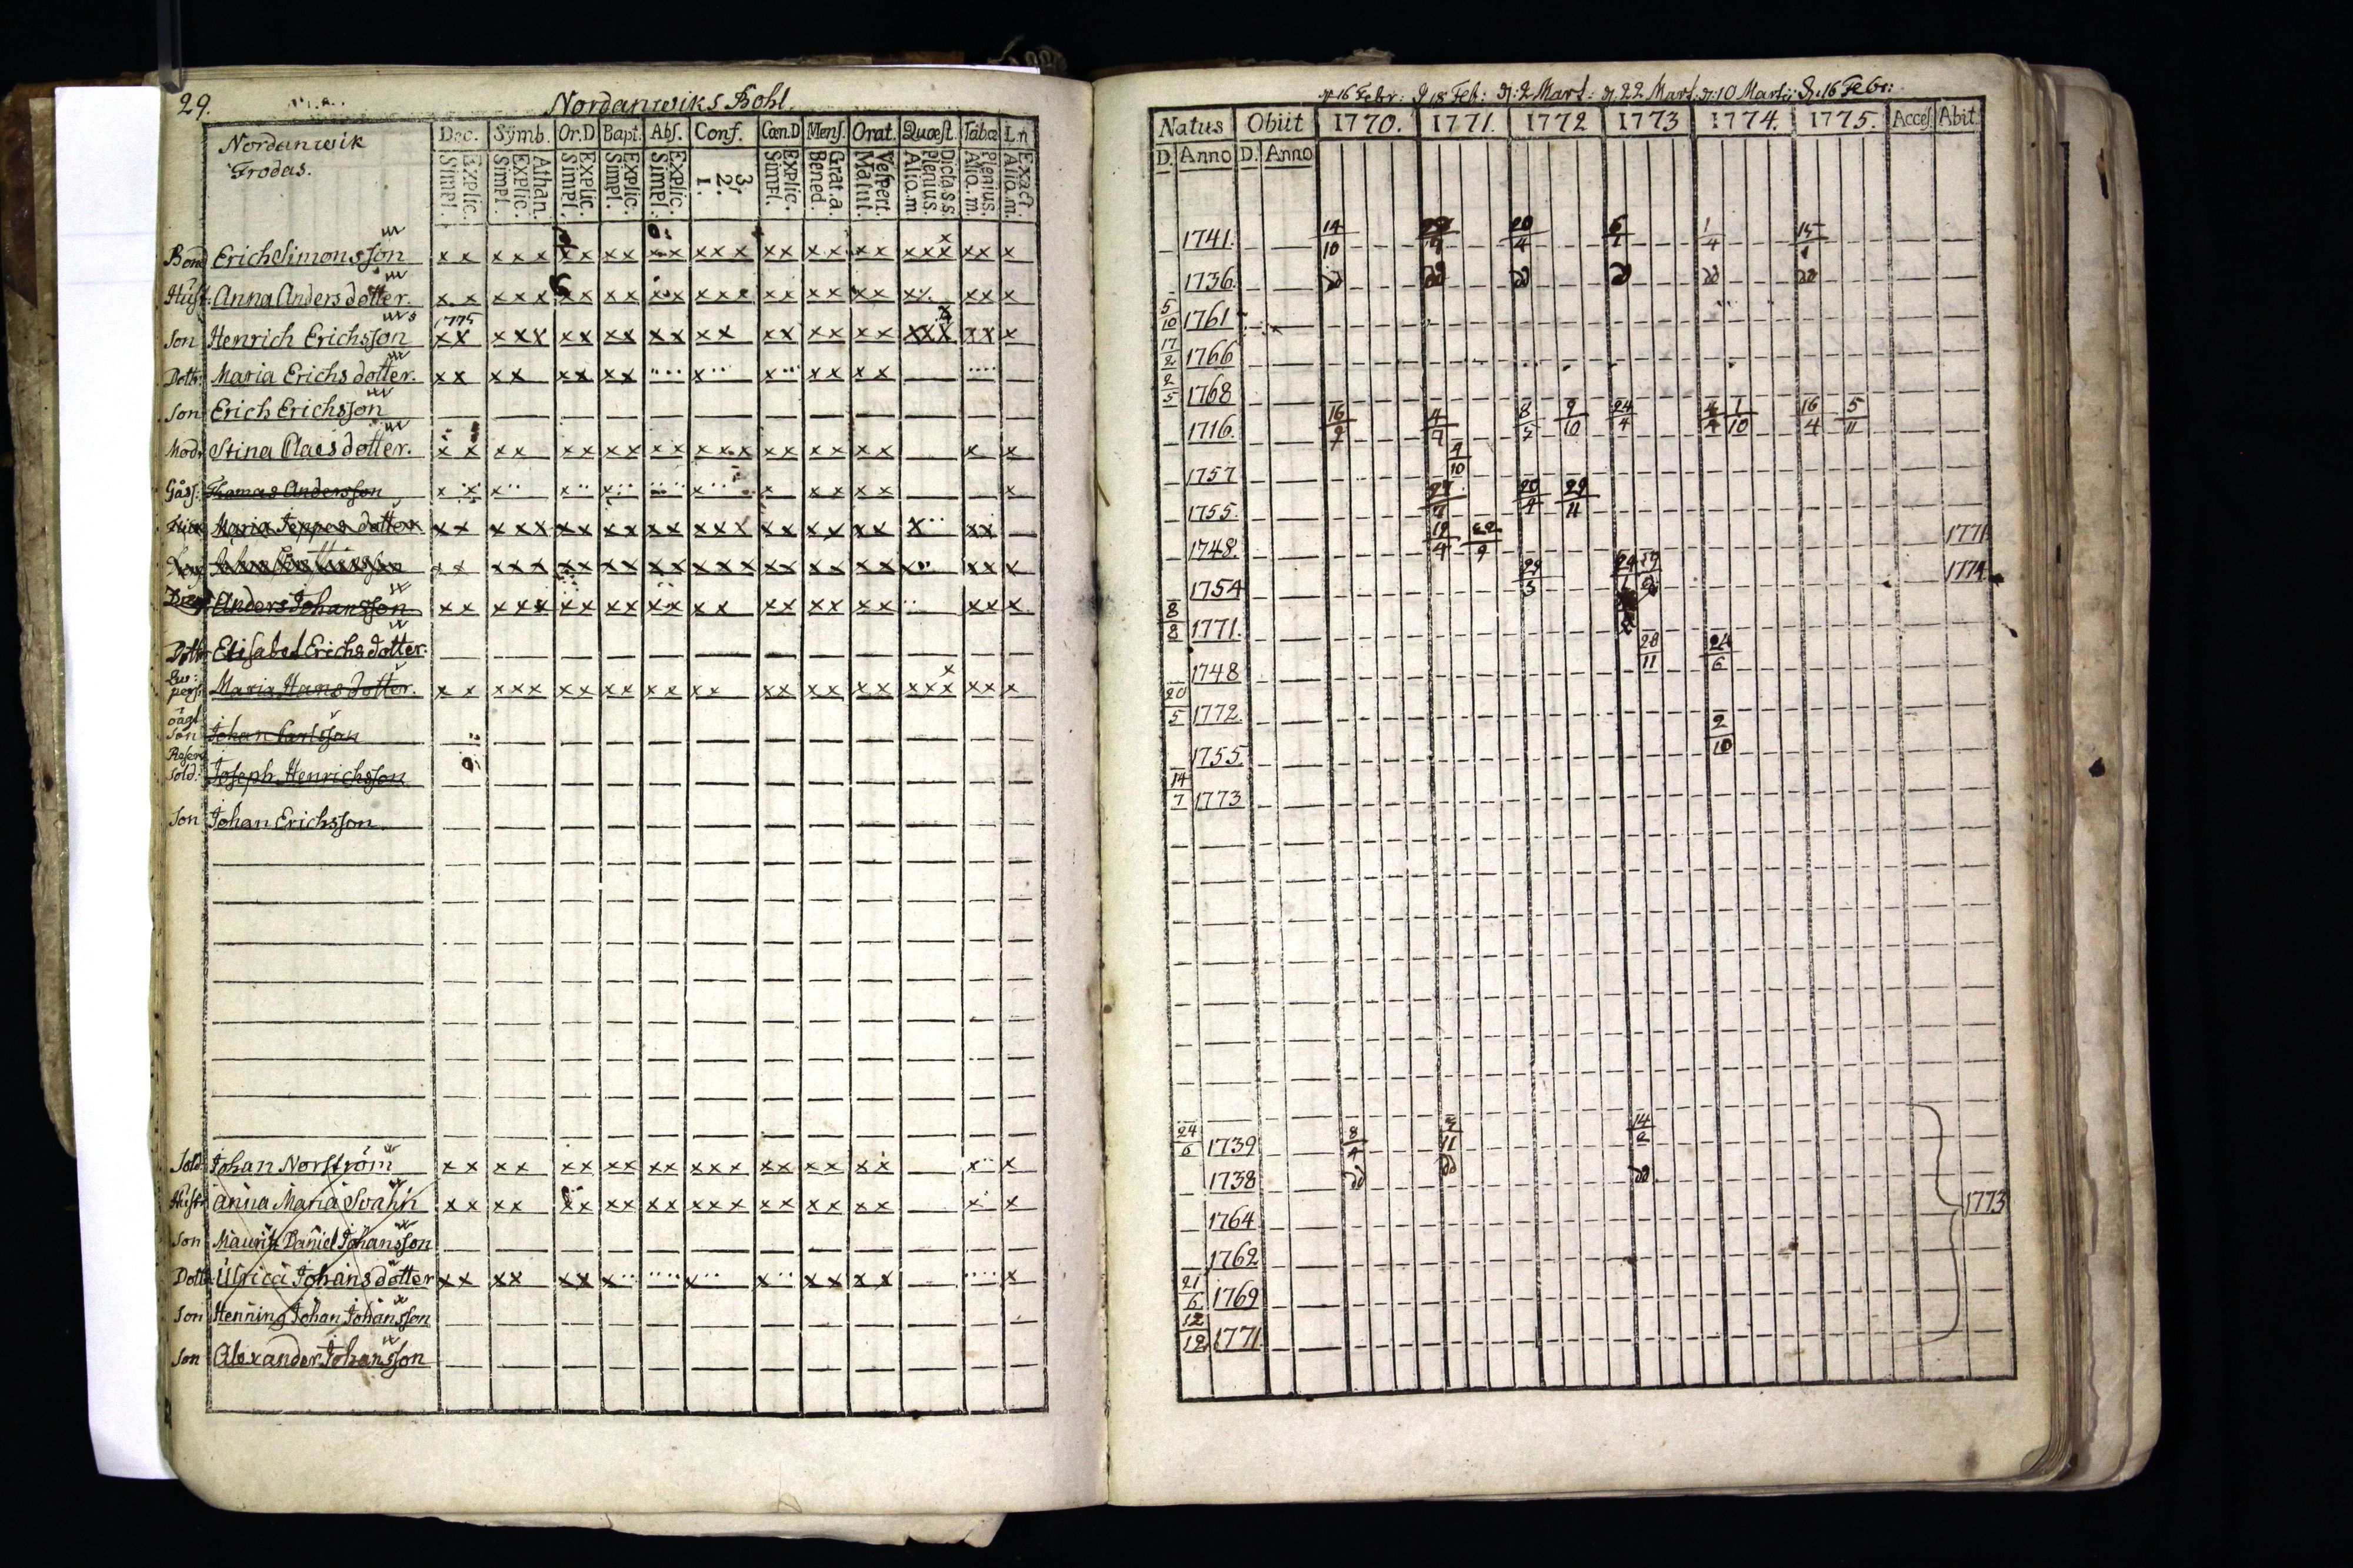 29.
Nordanwiks Bohl.
Nordanwik
Frodas.
Dec. Sÿmb. Or.D Bapt. Abs. Conf. Cœn.D Mens. Orat. Quæst. Tabœ Ln
Explic. Simpl. Athan. Explic. Simpl. Explic. Simpl. Explic. Simpl. Explic. Simpl. 3. 2. 1. Explic. Simpl. Grat. a. Bened. Vespert. Matut. Dicta s.s. plenius. Aliq. m plenius. Aliq. m. Exact Aliq. m.
Bond Erich Simonsson x x x x x x x x x x x x x x x x x x x x x x x x x x x
Hust: Anna Andersdotter. x x x x x x x x x x x x x x x x x x x x x x x x x
1775
Son Henrich Erichsson x x x x x x x x x x x x x x x x x x x x x x x x x x
Dottr: Maria Erichsdotter. x x x x x x x x x x x x x x
Son Erich Erichsson
Modr Stina Claesdotter. x x x x x x x x x x x x x x x x x x x x x
Gåss: Thomas Andersson x x x x x x x x x x x x
Maria Jeppes dotter x x x x x x x x x x x x x x x x x x x x x x x
x x x x x x x x x x x x x x x x x x x x x x x x
Anders Johansson x x x x x x x x x x x x x x x x x x x x x x
Dottr Elisabet Erichsdotter.
pers: Maria Hansdotter. x x x x x x x x x x x x x x x x x x x x x x x x x
oägt
Son Johan Carlsson
Sold: Joseph Henrichsson
Son Johan Erichsson
Sold: Johan Norström x x x x x x x x x x x x x x x x x x x x x
Hust: Anna Maria Svahn x x x x x x x x x x x x x x x x x x x x x
Son Maurits Daniel Johansson
Dottr: Ulrica Johansdotter x x x x x x x x x x x x x x
Son Henning Johan Johansson
Son Alexander Johansson
d. 16 Febr: d. 18 Feb: d. 2 Mart: d. 22 Mart: d. 10 Martij: d. 16 Febr:
Natus Obiit 1770. 1771. 1772 1773 1774. 1775. Acces. Abit.
D. Anno D. Anno
1741. 14/10 20/4 1/4
1736. dd dd dd dd dd
5/10 1761
17/2 1766
2/5 1768
1716. 9/10 24/4 1/10 16/4 5/11
1757 9/10
1755. 29/11
1748. 1771
1754 1774
8/8 1771.
1748 28/11 24/6
20/5 1772.
1755 2/10
14/7 1773
24/5 1739 14/2
1738 dd dd dd
1764 1773
1762
21/6 1769
12/12 1771